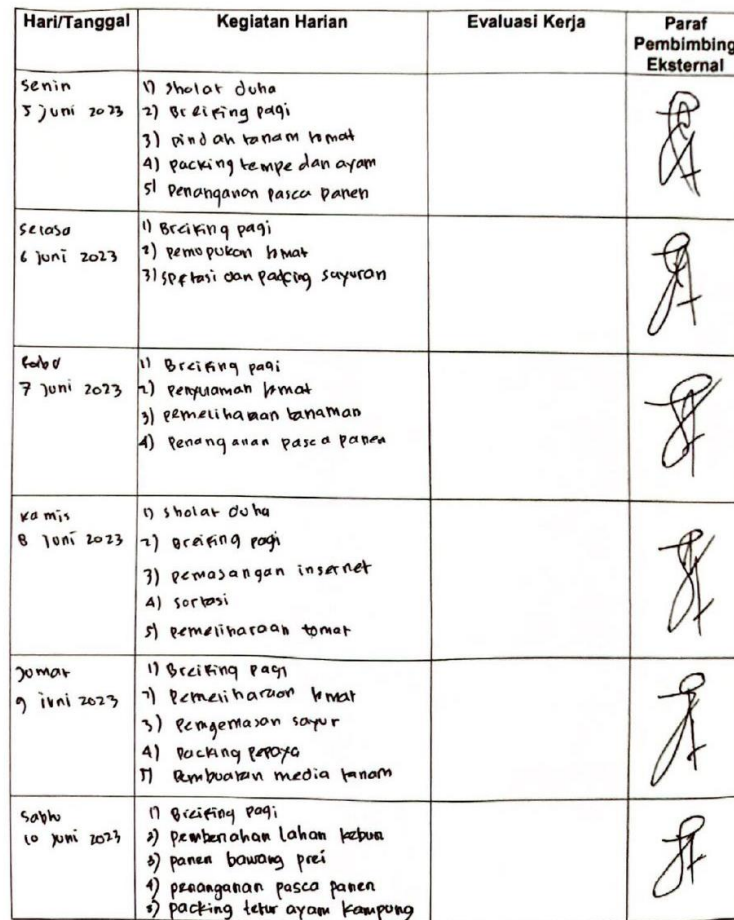 Hari/Tanggal Kegiatan Harian Evaluasi Kerja Paraf Pembimbing Eksternal
Senin
5 Juni 2023
1) Sholat duha
2) Breifing pagi
3) pindah tanam tomat
4) packing tempe dan ayam
5) Penanganan Pasca Panen
Selasa
6 Juni 2023
1) Breifing pagi
2) pemupukan tomat
3) sortasi dan packing sayuran
Rabu
7 Juni 2023
1) Breifing pagi
2) penyulaman tomat
3) pemeliharaan tanaman
4) Penanganan pasca panen
Kamis
8 Juni 2023
1) Sholat duha
2) Breifing pagi
3) pemasangan insernet
4) sortasi
5) Pemeliharaan tomat
Jumat
9 Juni 2023
1) Breifing pagi
2) Pemeliharaan tomat
3) Pemgemasan sayur
4) Packing pepaya
5) Pembuatan media tanam
Sabtu
10 Juni 2023
1) Breifing pagi
2) pembenahan lahan kebun
3) panen bawang prei
4) penanganan pasca panen
5) packing telur ayam kampung